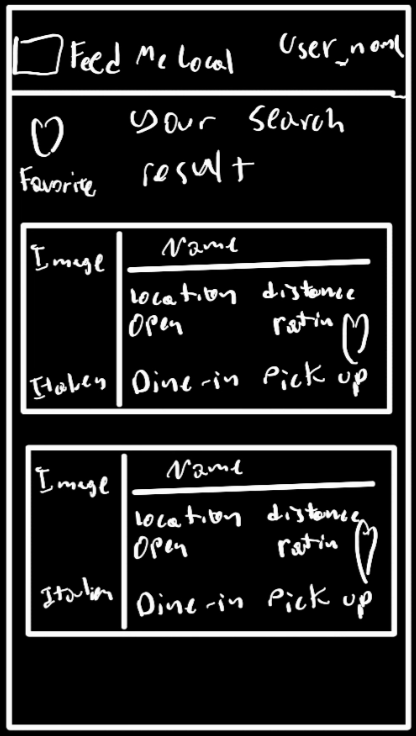 Feed Me Local User_name
your search
Favorite result
Image Name
location distance
open ratin
Italien Dine-in Pick up
Image Name
location distance
open ratin
Italien Dine-in Pick up